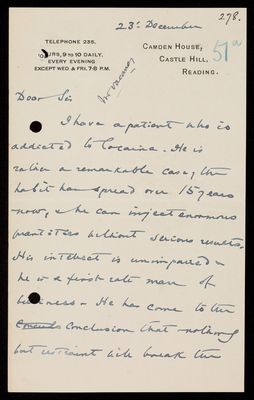 278.
23rd December
TELEPHONE 235.
HOURS, 9 TO 10 DAILY.
EVERY EVENING
EXCEPT WED. & FRI. 7-8 P.M.
CAMDEN HOUSE,
CASTLE HILL,
READING.
51a
No vacancy
Dear Sir
I have a patient who is
addicted to Cocaine. He is
rather a remarkable case, the
habit has spread over 15 years
now, & he can inject enormous
quantities without serious results.
His intellect is unimpaired &
he is a first rate man of
business. He has come to the
conclusion that nothing
but restraint will break the